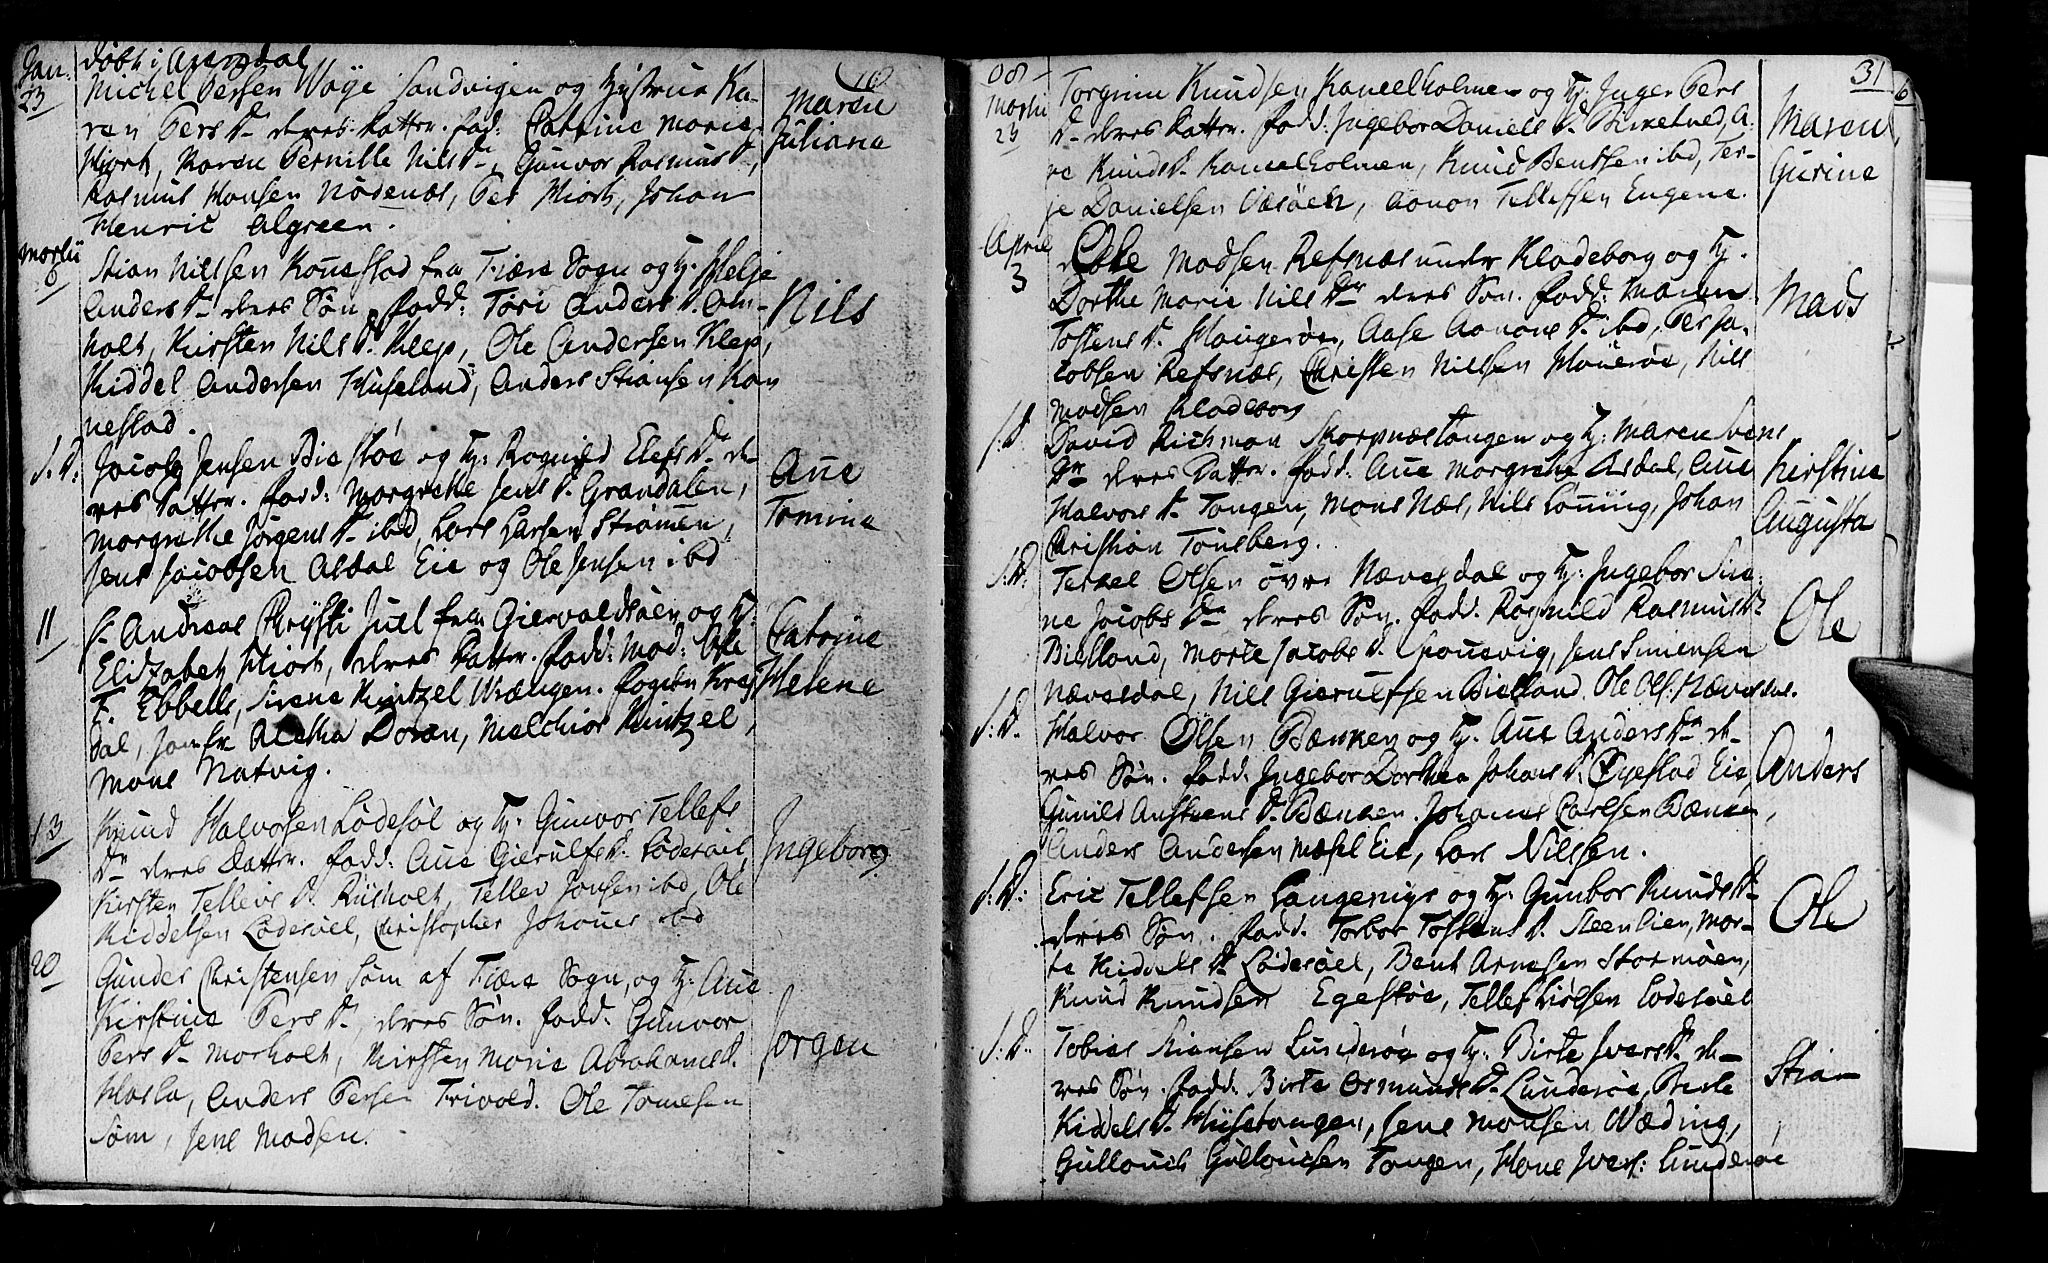 Jan: døbt i Arendal
23 Michel Persen Vøge Sandvigen og Hustrue Ka-
ren Pers D. deres Datter. fad: Catrine Marie
Hiort, Karen Pernille Nils D., Gunvor Rasmus D.,
Rasmus Hansen Nødenæs, Per Hiort, Johan
Henric Algreen.
Maren
Juliana
Martii
6 Stian Nillsen Konestad fra Tiære Sogn og H. Helje
Anders D. deres Søn, fadd: Tori Anders D. Om-
holt, Kirsten Nils D. Klep, Ole Andersen Klep,
Kiddel Andersen Huseland, Anders Stiansen Kon
nestad.
Nils
S. D: Jacob Jensen Biestøe og H: Ragnild Elefs D. de-
res Datter. fadd: Margrethe Jens D. Grandalen,
Margrethe Jørgens D. ibd, Lars Larsen Strømen,
Jens Jacobsen Asdal Eie og Ole Jensen ibd
Ane
Tomine
11 S. Andreas Chrysti Juel fra Giervaldsøen og H:
Elizabet Hiort, deres Datter. fadd: Mad: Ole
F. Ebbells, Sirene Kintzel Wrængen. Fogetn
dal, Jomfr Aletha Doran, Melchior Kintzel,
Mons Natvig.
Catrine
Helene
13 Knud Halvorsen Lødesøl og H: Gunvor Tellefs
D. deres Datter. fadd: Ane Gierulfs D. Lødesøel
Kirsten Tellevs D. Riisholt, Tellev Jonsen ibd, Ole
Kiddelsen Lødesøel, Christopher Johanes ibd
Ingeborg
20 Gunder Christensen Søm af Tiære Sogn, og H: Ane
Kirstine Pers D., deres Søn. fadd. Gunvor
Pers D. Morholt, Kirsten Marie Abrahams D.
Hasla, Anders Persen Trivold. Ole Tomesen
Søm, Jens Madsen.
Jørgen
31
08
Martii
23 Torgrim Knudsen Kaneelholmen og H: Inger Pers
D. deres Datter. fadd: Ingebor Daniels D. Birketved, A-
ne Knuds D. Kaneelholmen, Knud Bentsen ibd, Ter-
je Danielsen Usøen, Aanon Tellefsen Engene.
Maren
Gurine
April
3 Ole Madsen Refsnæs under Kladeborg og H.
Dorthe Marie Nils D. deres Søn. fadd: Maren
Tostens D. Haugerøe, Aase Aanons D. ibd, Per Ja-
cobsen Refsnæs, Christen Nillsen Haverøe, Nils
Madsen Kladeborg
Mads
S. D. David Richman Skarpnæstangen og H: Maren Svens
D. deres Datter. fadd: Ane Margrethe Asdal, Ane
Halvors D. Tangen, Mons Næs, Nils Løning, Johan
Cristian Tønsberg.
Kirstine
Augusta
S: D: Terkel Olsen øvre Nævesdal og H: Ingebor Sire-
ne Jacobs D. deres Søn. fadd. Ragnild Rasmus D.
Bielland, Marte Jacobs D. Spousvig, Jens Simensen
Nævesdal, Nils Gierulfsen Bielland. Ole Ols: Nævesdal.
Ole
S: D. Halvor Olsen Bænken og H. Ane Anders D. de-
res Søn. fadd: Ingebor Dorthea Johans D. Øyestad Eie,
Gunild Anstens D. Bænken. Johanes Carlsen Bænken,
Anders Andersen Mæsel Eie, Lars Nilsen.
Anders
S: D: Eric Tellefsen Langenigs og H: Gunbor Knuds D.
deres Søn. fadd. Torbor Tostens D. Steenlien, Mar-
te Kiddels D. Lødesøel, Bent Arnesen Stormøen,
Knud Knudsen Egestøe, Tellef Liølsen Lødesøel
Ole
S: D. Tobias Stiansen Lunderøe og H: Birte Ivers D. de-
res Søn. fadd: Birte Osmunds D. Lunderøe, Birte
Kiddels D. Husetangen, Jens Monsen Wæding,
Gullouch Gullouchsen Tangen, Hans Ivers: Lunderøe
Stian